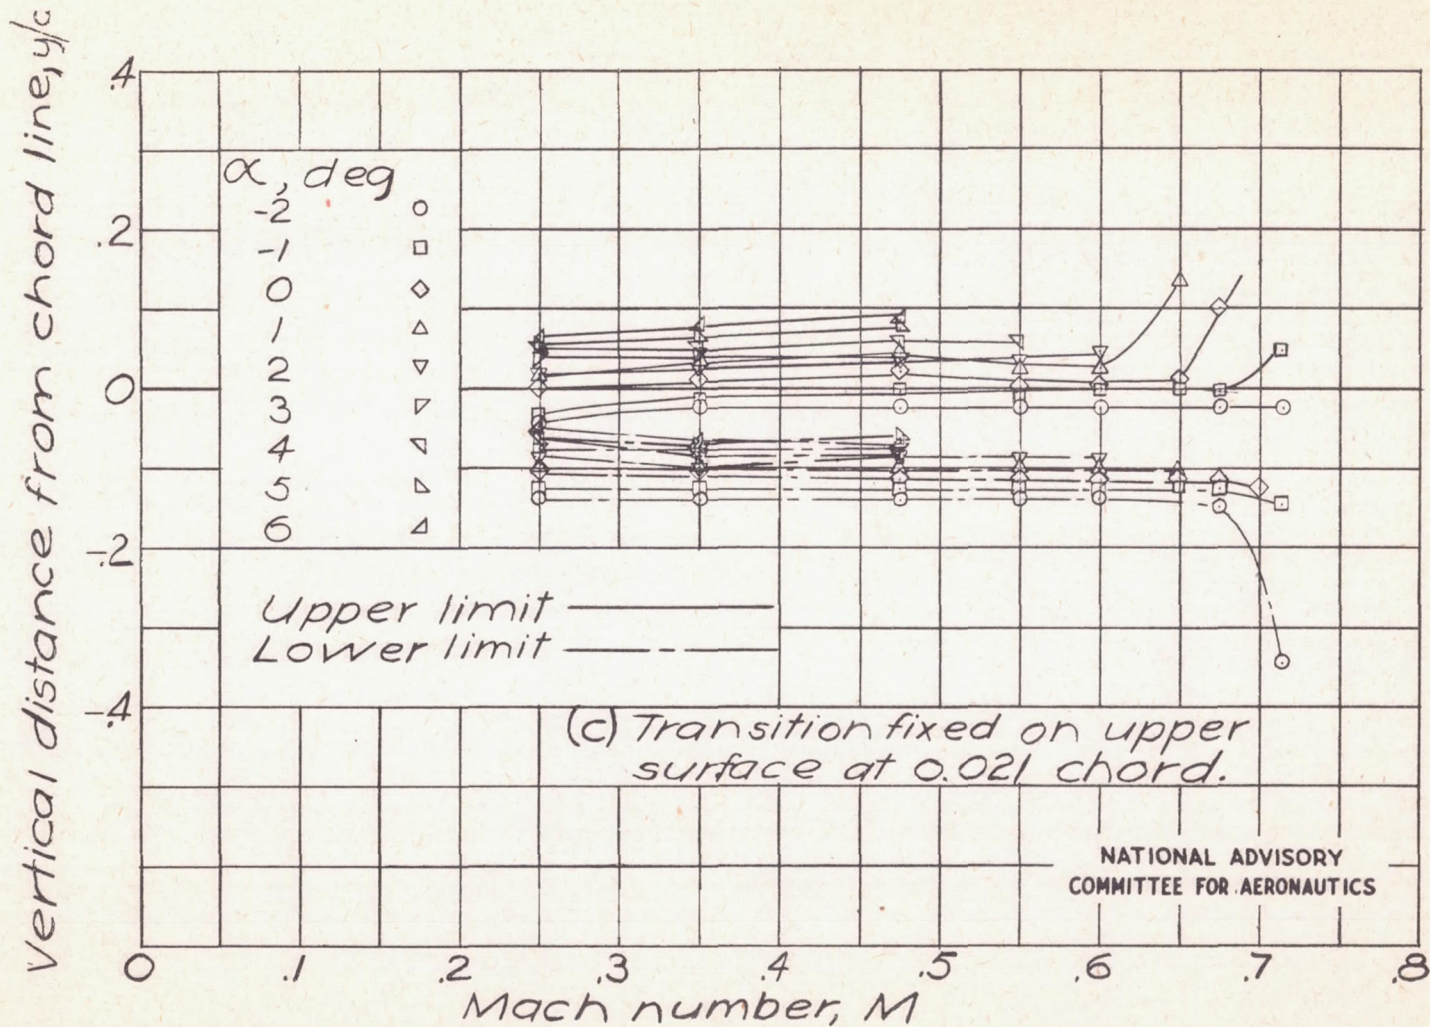 Vertical distance from chord line, y/c
.4
.2
0
-.2
-.4
α, deg
-2
-1
0
1
2
3
4
5
6
Upper limit
Lower limit
(c) Transition fixed on upper
surface at 0.021 chord.
NATIONAL ADVISORY
COMMITTEE FOR AERONAUTICS
0 .1 .2 .3 .4 .5 .6 .7 .8
Mach number, M